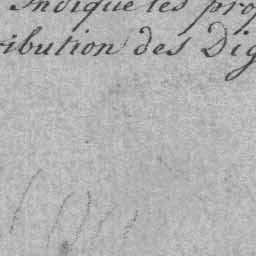 Indique les prop
ribution des Dig